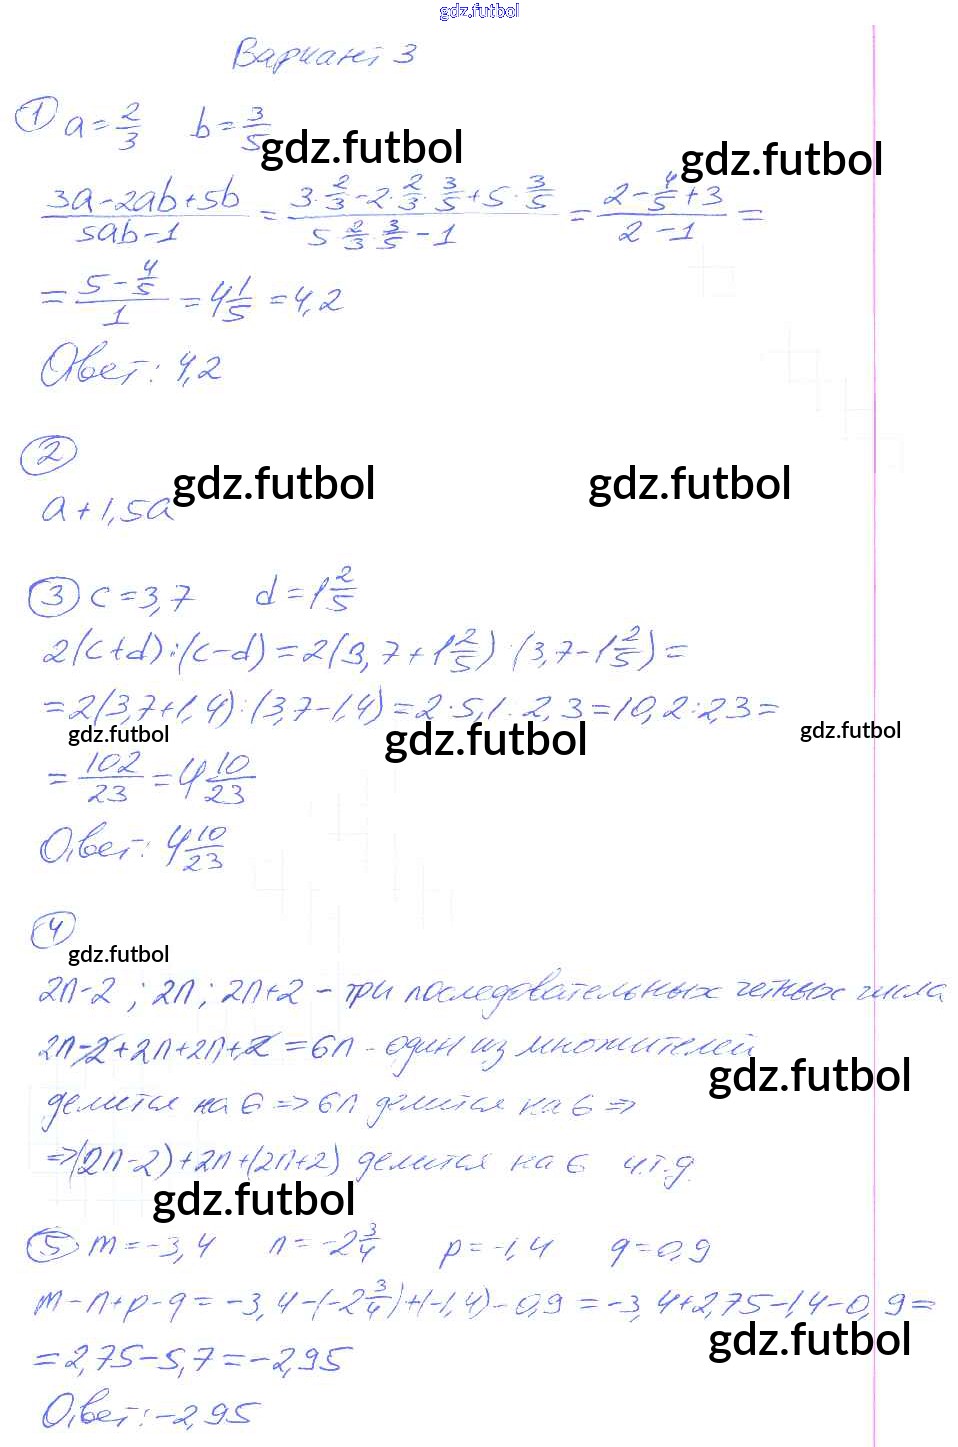 gdz.futbol
Вариант 3
① a = 2/3   b = 3/5
gdz.futbol   gdz.futbol
(3a - 2ab + 5b)/(5ab - 1) = (3·2/3 - 2·2/3·3/5 + 5·3/5)/(5 2/3·3/5 - 1) = (2 - 4/5 + 3)/(2 - 1) =
= (5 - 4/5)/1 = 4 1/5 = 4,2
Ответ: 4,2
②
gdz.futbol   gdz.futbol
a + 1,5a
③ c = 3,7   d = 1 2/5
2(c+d):(c-d) = 2(3,7 + 1 2/5) · (3,7 - 1 2/5) =
= 2(3,7+1,4):(3,7-1,4) = 2·5,1 · 2,3 = 10,2:2,3 =
gdz.futbol   gdz.futbol   gdz.futbol
= 102/23 = 4 10/23
Ответ: 4 10/23
④
gdz.futbol
2n-2 ; 2n ; 2n+2 - три последовательных четных числа
2n-2+2n+2n+2 = 6n - один из множителей
gdz.futbol
делится на 6 => 6n делится на 6 =>
=> (2n-2)+2n+(2n+2) делится на 6 ч.т.д.
gdz.futbol
⑤ m = -3,4   n = -2 3/4   p = -1,4   q = 0,9
m - n + p - q = -3,4 - (-2 3/4) + (-1,4) - 0,9 = -3,4 + 2,75 - 1,4 - 0,9 =
gdz.futbol
= 2,75 - 5,7 = -2,95
Ответ: -2,95